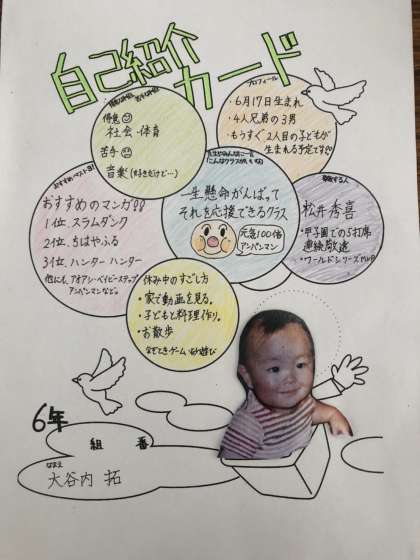 自己紹介
カード
得意
社会・体育
苦手
音楽(好きだけど…)
プロフィール
・6月17日生まれ
・4人兄弟の3男
・もうすぐ2人目の子どもが
生まれる予定です
おすすめベスト3!
おすすめのマンガ
1位、スラムダンク
2位、ちはやふる
3位、ハンター ハンター
他にも、アオアシ・ベイビーステップ
アンパンマンなど。
一生懸命がんばって
それを応援できるクラス
元気100倍
アンパンマン
尊敬する人
松井秀喜
・甲子園での5打席
連続敬遠
・ワールドシリーズMVP
休み中のすごし方
・家で動画を見る。
・子どもと料理作り。
・お散歩
なぞときゲーム・砂遊び
6年
組 番
なまえ
大谷内 拓